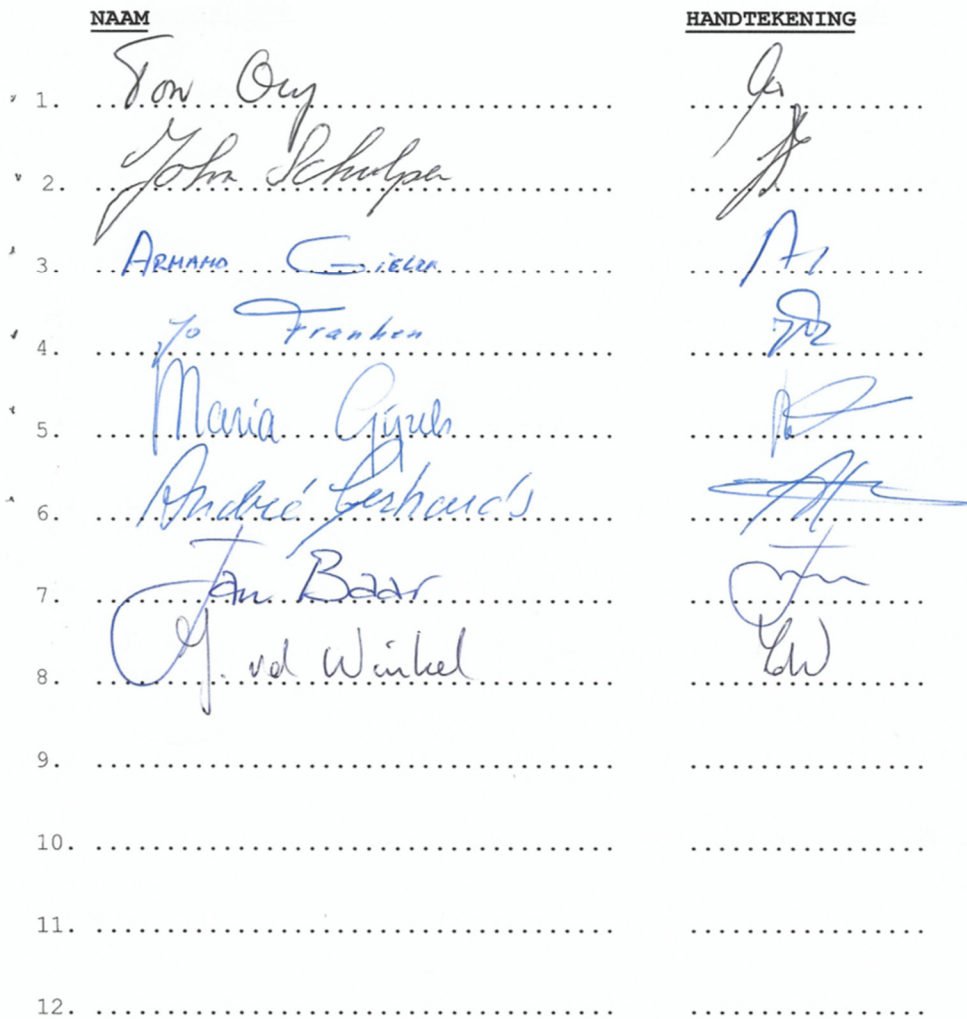 NAAM HANDTEKENING
1. Ton Ory
2. John Schulpen
3. ARMAND GIELEN
4. Jo Franken
5. Maria Gijzels
6. André Gerhards
7. Jan Baar
8. M. vd Winkel
9.
10.
11.
12.